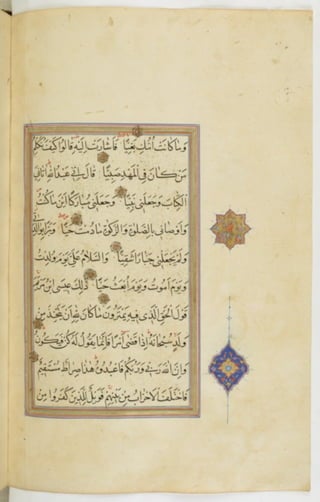 وما كانت امك بغيا فاشارت اليه قالوا كيف نكلم
من كان في المهد صبيا قال اني عبد الله اتاني
الكتاب وجعلني نبيا وجعلني مباركا اين ما كنت
واوصاني بالصلوة والزكوة ما دمت حيا وبرا بوالدتي
ولم يجعلني جبارا شقيا والسلام علي يوم ولدت
ويوم اموت ويوم ابعث حيا ذلك عيسى ابن مريم
قول الحق الذي فيه يمترون ما كان لله ان يتخذ من
ولد سبحانه اذا قضى امرا فانما يقول له كن فيكون
وان الله ربي وربكم فاعبدوه هذا صراط مستقيم
فاختلف الاحزاب من بينهم فويل للذين كفروا من